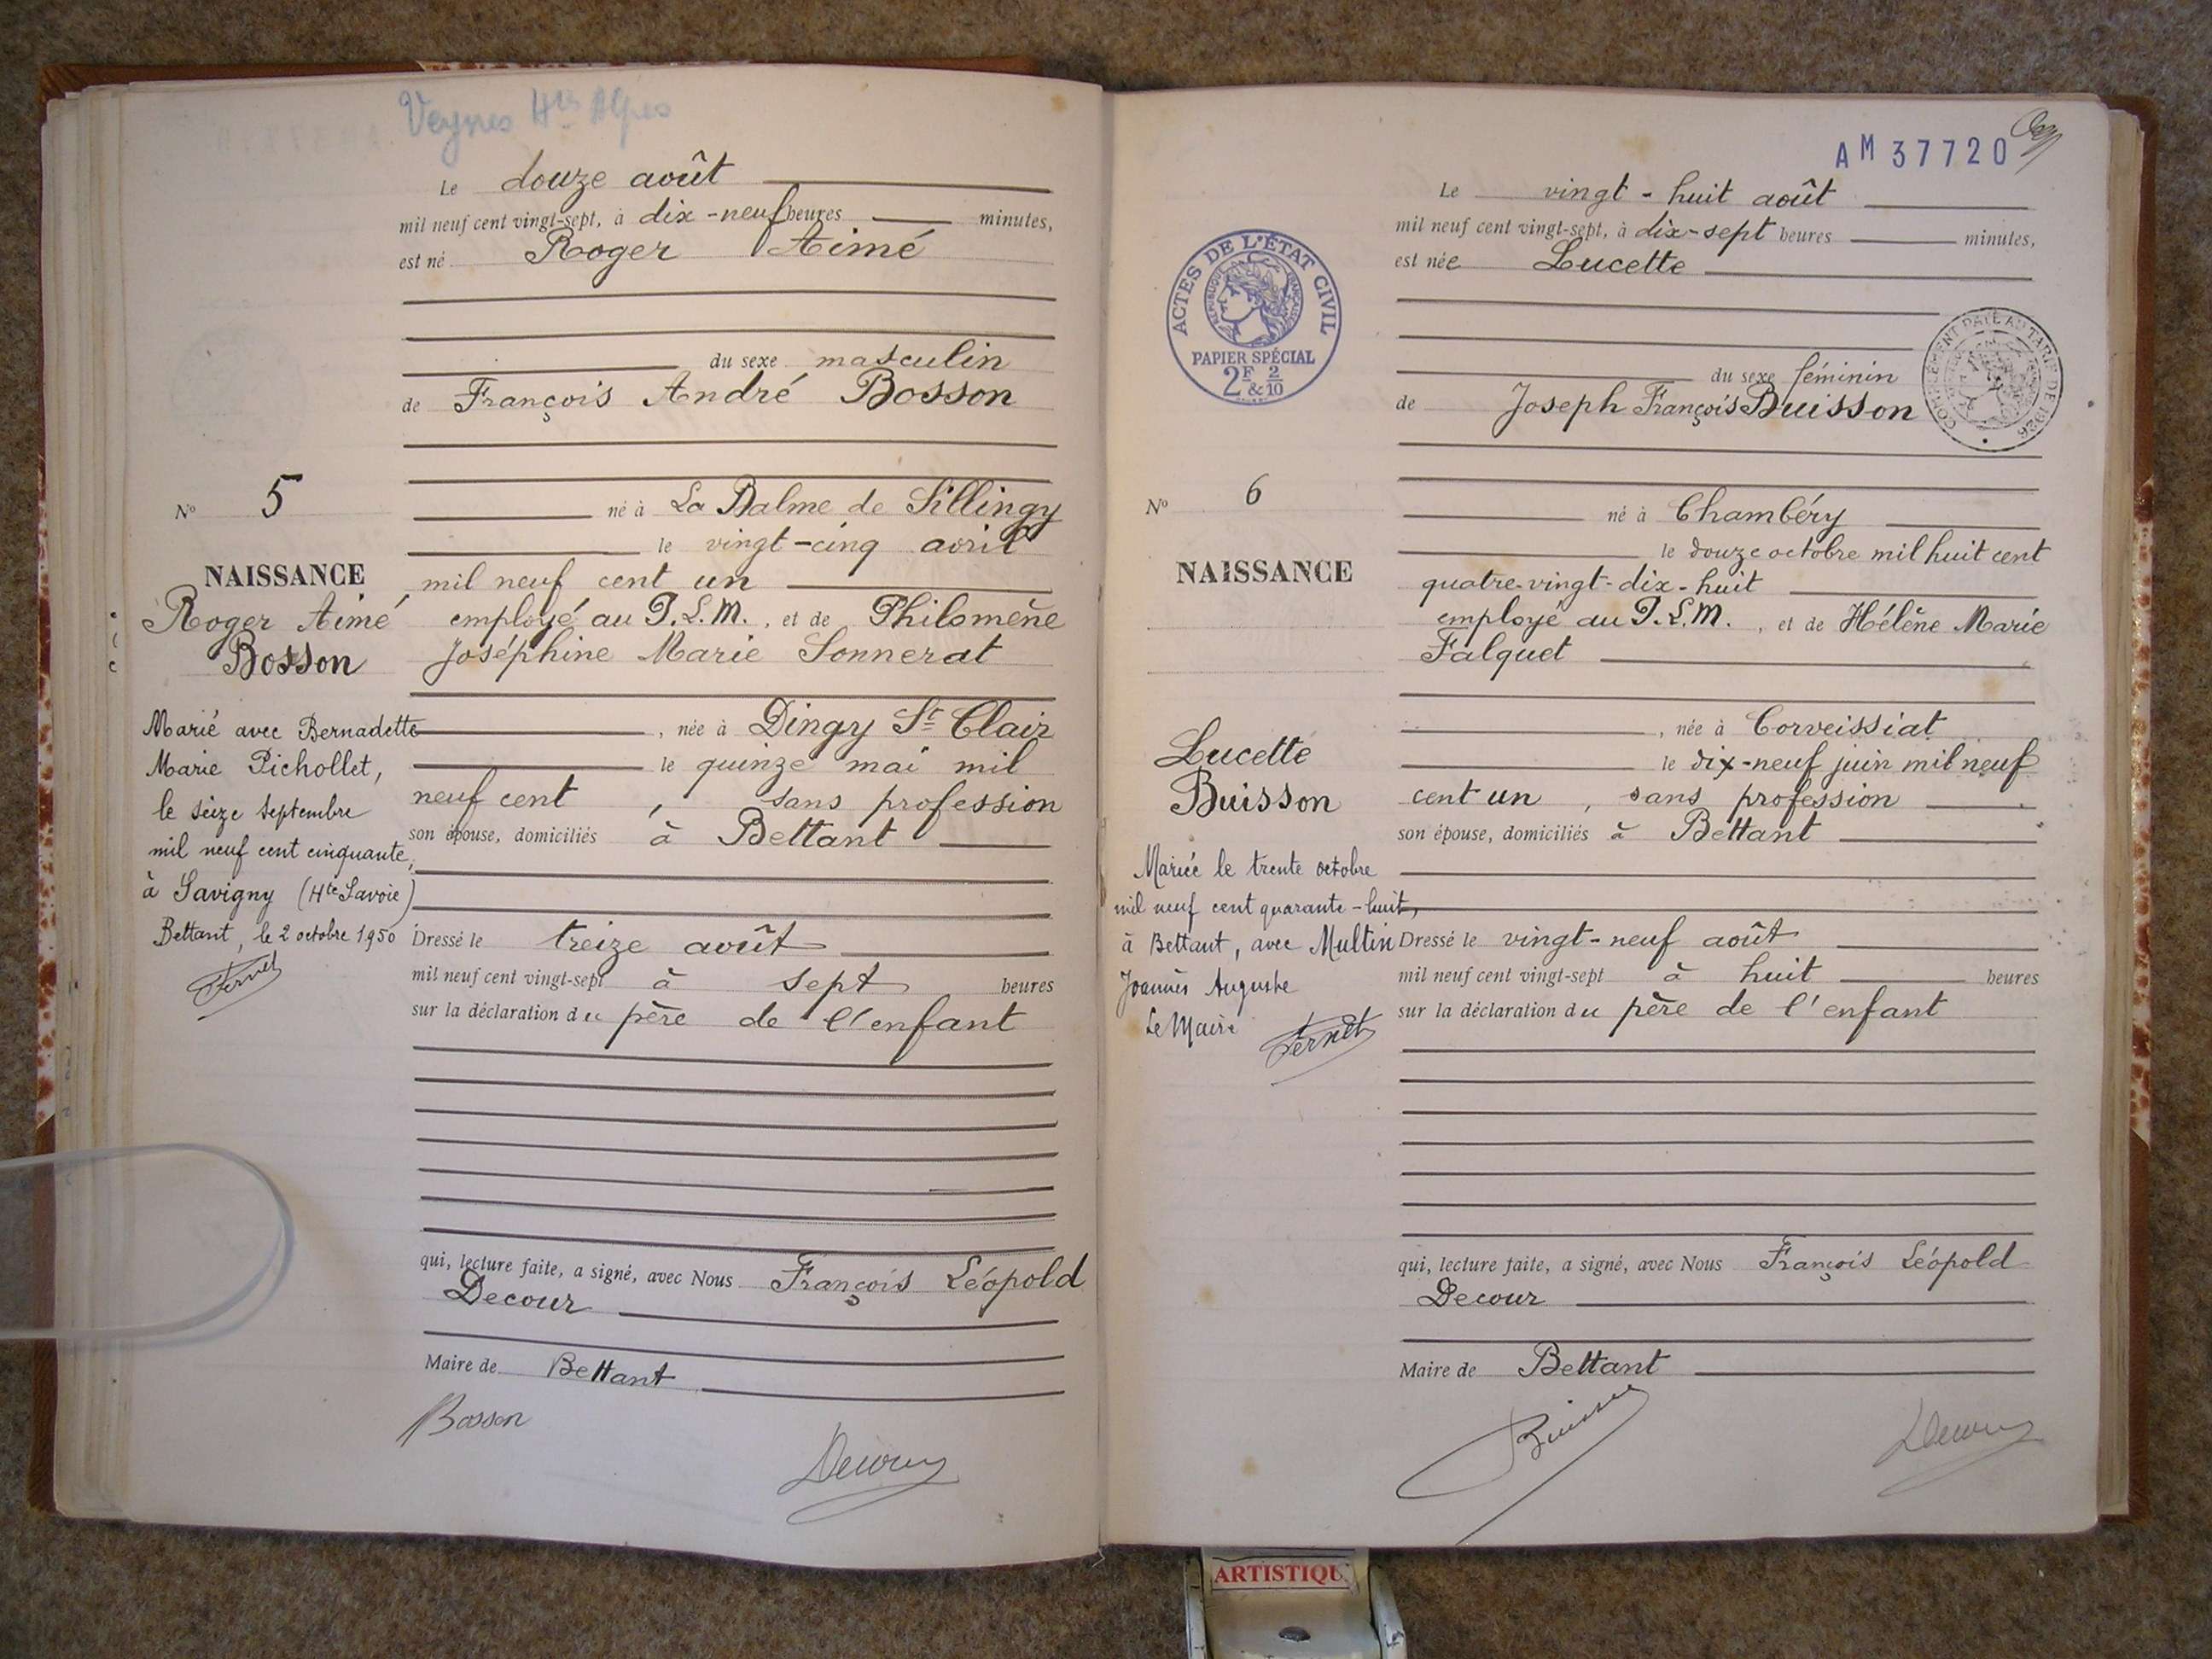 Veynes Htes Alpes
Le douze août
mil neuf cent vingt-sept, à dix-neuf heures minutes,
est né Roger Aimé
du sexe masculin
de François André Bosson
né à La Balme de Sillingy
le vingt-cinq avril
mil neuf cent un
employé au P.L.M., et de Philomène
Joséphine Marie Sonnerat
, née à Dingy St Clair
le quinze mai mil
neuf cent , sans profession
son épouse, domiciliés à Bettant
Dressé le treize août
mil neuf cent vingt-sept à sept heures
sur la déclaration du père de l'enfant
qui, lecture faite, a signé, avec Nous François Léopold
Decour
Maire de Bettant
Bosson
Decour
N° 5
NAISSANCE
Roger Aimé
Bosson
Marié avec Bernadette
Marie Pichollet,
le seize septembre
mil neuf cent cinquante,
à Savigny (Hte Savoie)
Bettant, le 2 octobre 1950
Fernet
AM 37720
ACTES DE L'ÉTAT CIVIL
RÉPUBLIQUE FRANÇAISE
PAPIER SPÉCIAL
2F & 2/10
COMPLÉMENT PAYÉ AU TARIF DE 1926
Le vingt-huit août
mil neuf cent vingt-sept, à dix-sept heures minutes,
est née Lucette
du sexe féminin
de Joseph François Buisson
né à Chambéry
le douze octobre mil huit cent
quatre-vingt-dix-huit
employé au P.L.M., et de Hélène Marie
Falquet
, née à Corveissiat
le dix-neuf juin mil neuf
cent un , sans profession
son épouse, domiciliés à Bettant
Dressé le vingt-neuf août
mil neuf cent vingt-sept à huit heures
sur la déclaration du père de l'enfant
qui, lecture faite, a signé, avec Nous François Léopold
Decour
Maire de Bettant
Buisson
Decour
N° 6
NAISSANCE
Lucette
Buisson
Mariée le trente octobre
mil neuf cent quarante-huit,
à Bettant, avec Multin
Joannès Auguste
Le Maire
Fernet
ARTISTIQU